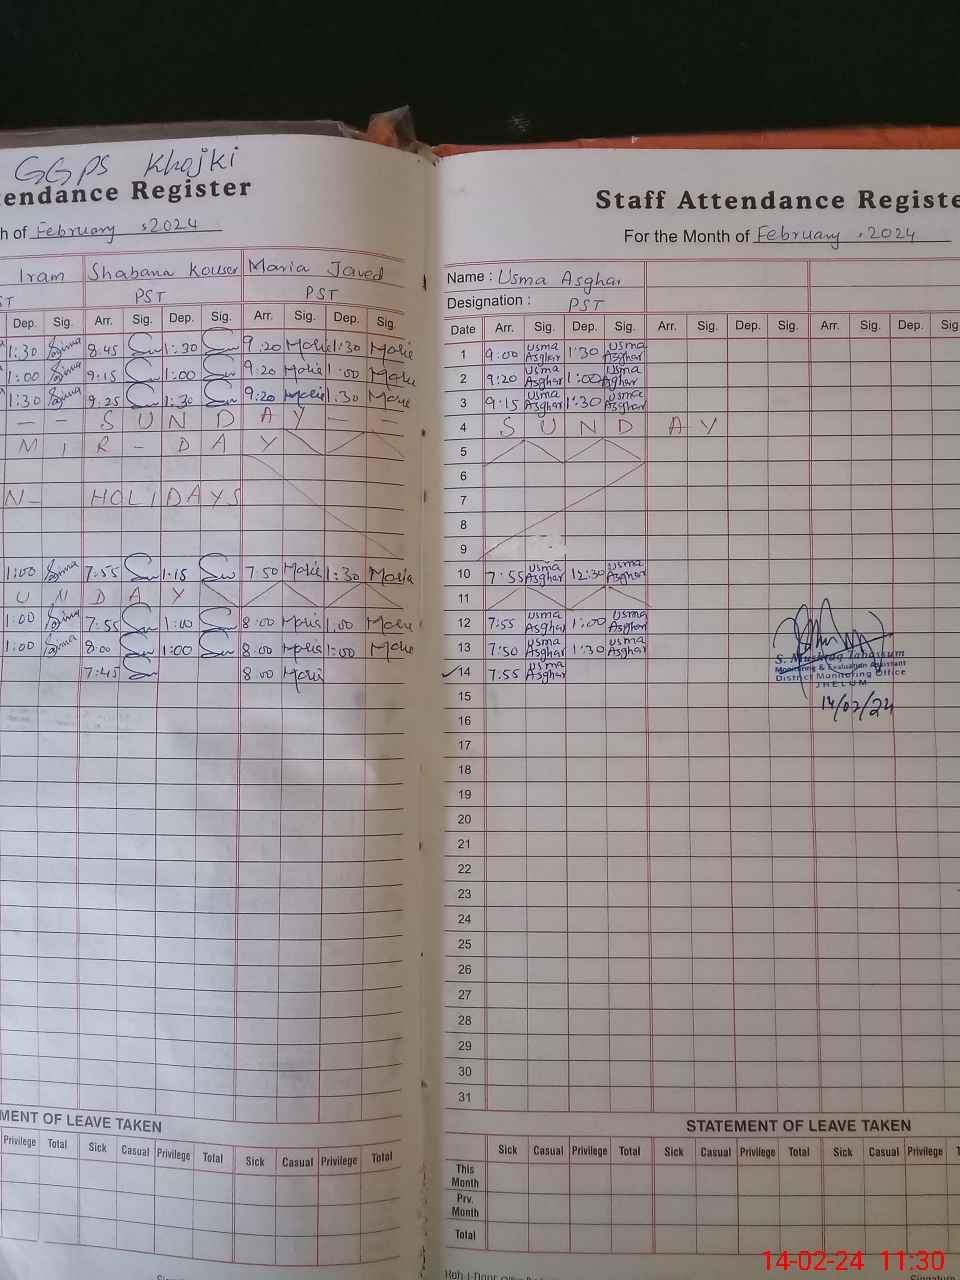 GGPS Khojki
tendance Register
h of February , 2024
Iram Shabana Kouser Maria Javed
ST PST PST
Dep. Sig. Arr. Sig. Dep. Sig. Arr. Sig. Dep. Sig.
1:30 8:45 1:30 9:20 1:30
1:00 9:15 1:00 9:20 1:00
1:30 9:25 1:30 9:20 1:30
- - S U N D A Y - -
M I R - D A Y
N - HOLIDAYS
1:00 7:55 1:15 7:50 1:30 Maria
U N D A Y
1:00 7:55 1:00 8:00 1:00
1:00 8:00 1:00 8:00 1:00
7:45 8:00
MENT OF LEAVE TAKEN
Privilege Total Sick Casual Privilege Total Sick Casual Privilege Total
Staff Attendance Registe
For the Month of February , 2024
Name : Usma Asghar
Designation : PST
Date Arr. Sig. Dep. Sig. Arr. Sig. Dep. Sig. Arr. Sig. Dep. Sig
1 9:00 Usma Asghar 1:30 Usma Asghar
2 9:20 Usma Asghar 1:00 Usma Asghar
3 9:15 Usma Asghar 1:30 Usma Asghar
4 S U N D A Y
5
6
7
8
9
10 7:55 Usma Asghar 12:30 Usma Asghar
11
12 7:55 Usma Asghar 1:00 Usma Asghar
13 7:50 Usma Asghar 1:30 Usma Asghar
14 7:55 Usma Asghar
S. Mushtaq Tabassum
Monitoring & Evaluation Assistant
District Monitoring Office
JHELUM
14/02/24
15
16
17
18
19
20
21
22
23
24
25
26
27
28
29
30
31
STATEMENT OF LEAVE TAKEN
Sick Casual Privilege Total Sick Casual Privilege Total Sick Casual Privilege
This Month
Prv. Month
Total
14-02-24 11:30